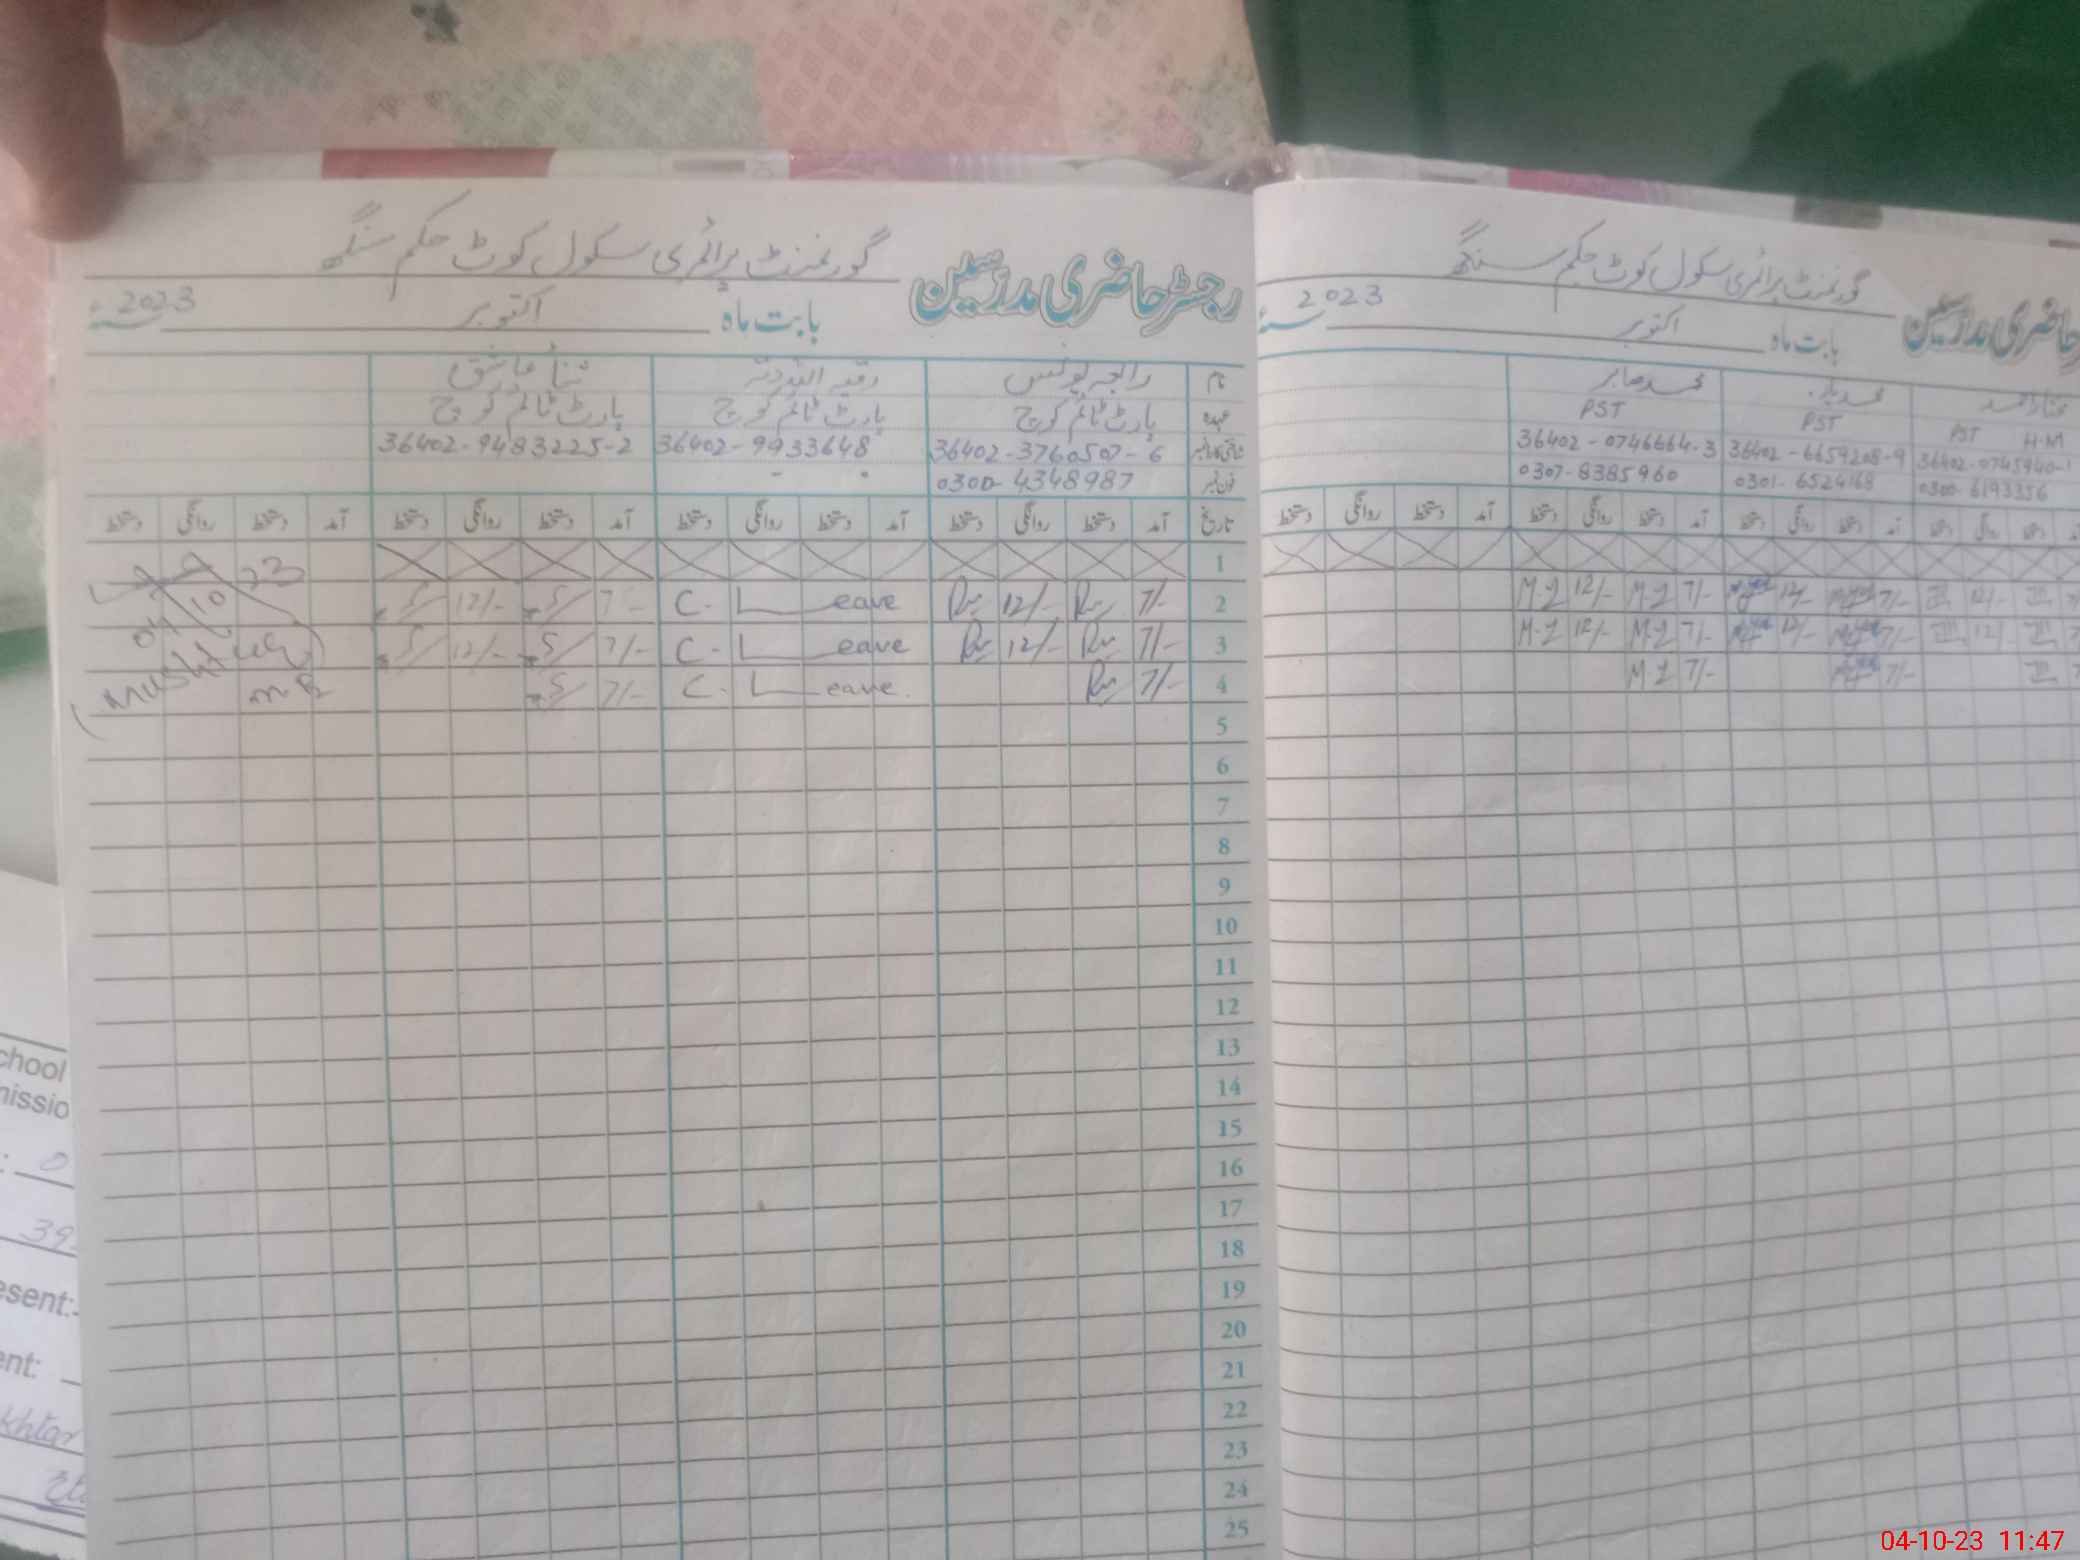 گورنمنٹ پرائمری سکول کوٹ حکم سنگھ
رجسٹر حاضری مدرسین
بابت ماہ اکتوبر 2023
نام رابعہ یونس ثناء عاشق
عہدہ پارٹ ٹائم کوچ پارٹ ٹائم کوچ پارٹ ٹائم کوچ
36402-3760507-6 36402-9933648 36402-9483225-2
فون نمبر 0300-4348987 - -
تاریخ آمد دستخط روانگی دستخط آمد دستخط روانگی دستخط آمد دستخط روانگی دستخط آمد دستخط روانگی دستخط
1
2 7/- Ru 12/- Ru C. Leave 7/- S 12/- S
3 7/- Ru 12/- Ru C. Leave 7/- S 12/- S
4 7/- Ru C. Leave. 7/- S
04 10 23
5
6
7
8
9
10
11
12
13
14
15
16
17
18
19
20
21
22
23
24
25
گورنمنٹ پرائمری سکول کوٹ حکم سنگھ
حاضری مدرسین
بابت ماہ اکتوبر 2023
محمد صابر
PST H.M PST PST
36402-0745940-1 36402-6659208-9 36402-0746664-3
0300-6193356 0301-6524168 0307-8385960
دستخط روانگی دستخط آمد دستخط روانگی دستخط آمد دستخط روانگی دستخط آمد دستخط روانگی دستخط
12/- 7/- 12/- 7/- M-Y 12/- M-Y
12/- 7/- 12/- 7/- M-Y 12/- M-Y
7/- 7/- M-Y
chool
missio
: 0
39
esent:
ent:
khtar
04-10-23 11:47